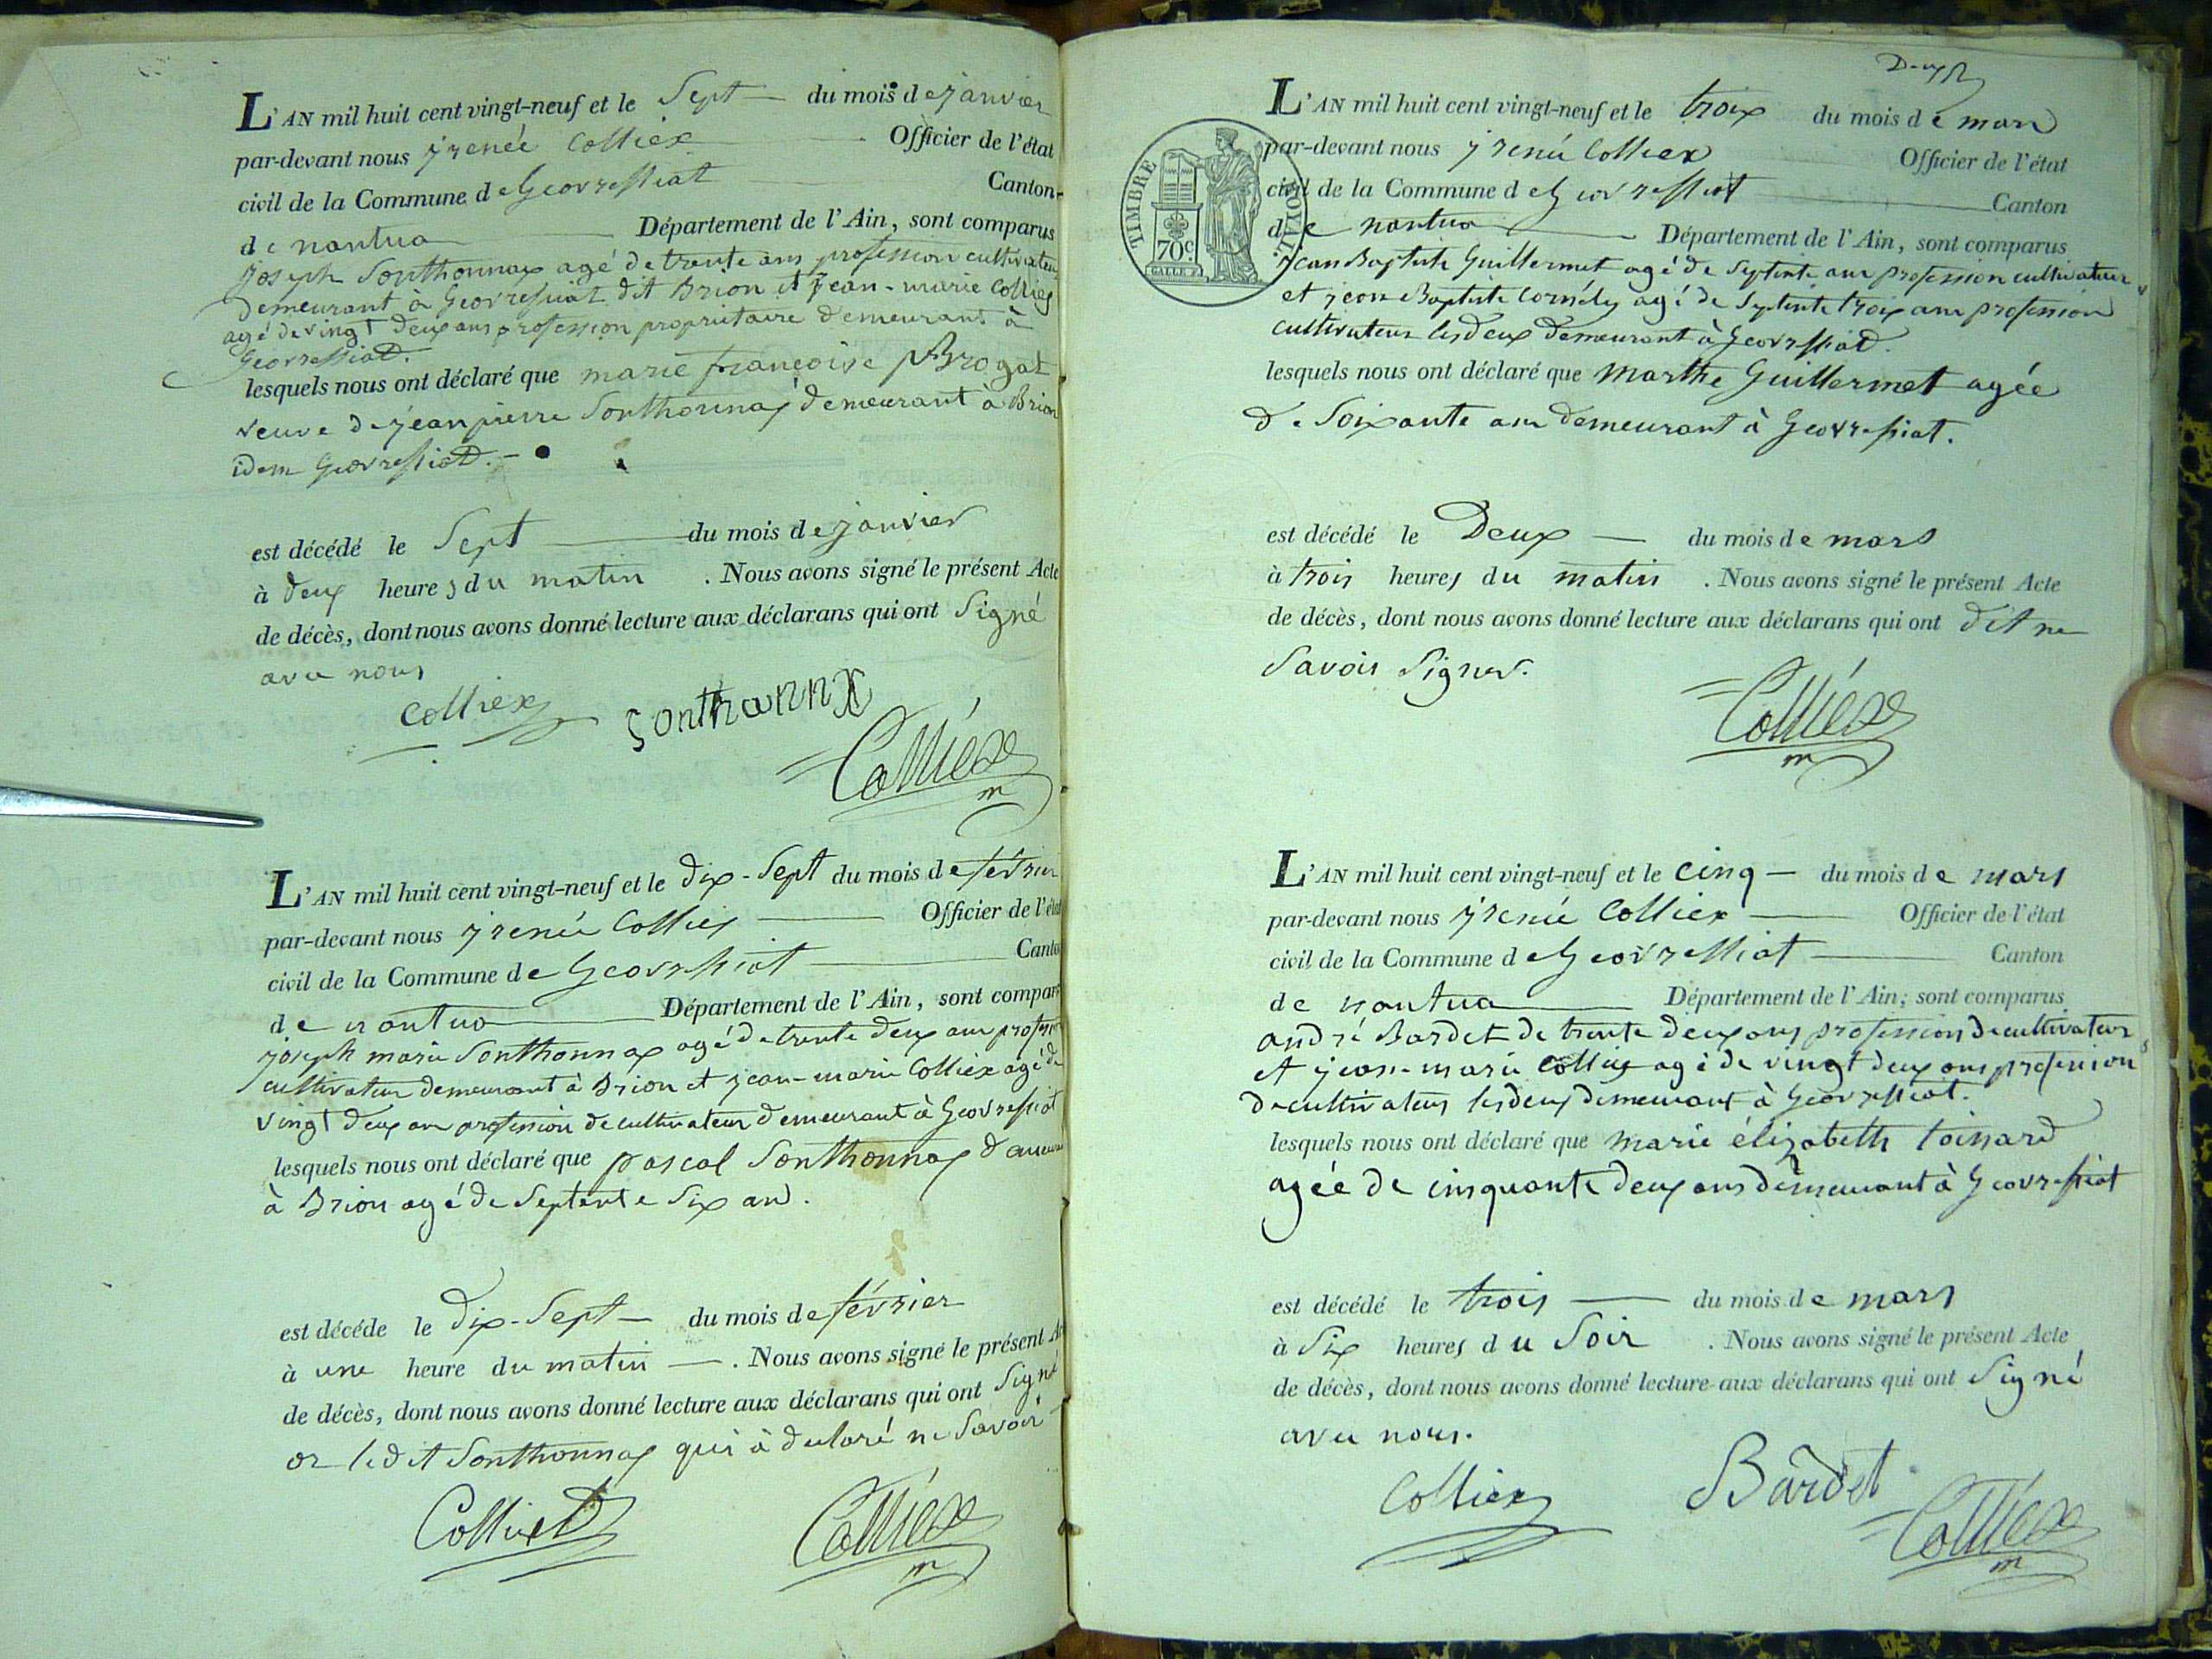 L'AN mil huit cent vingt-neuf et le Sept du mois de janvier
par-devant nous jrenée Colliex Officier de l'état
civil de la Commune de Geovressiat Canton
de nantua Département de l'Ain, sont comparus
joseph Sonthonnax agé de trente ans profession cultivateur
demeurant à Geovressiat dit Brion et jean-marie Colliex
agé de vingt deux ans profession propriétaire demeurant à
Geovressiat.
lesquels nous ont déclaré que marie françoise Brogat
veuve de jean pierre Sonthonnax demeurant à Brion
idem Geovressiat.
est décédé le Sept du mois de janvier
à deux heures du matin . Nous avons signé le présent Acte
de décès, dont nous avons donné lecture aux déclarans qui ont Signé
avec nous
Colliex Sonthannx
Colliéx
m
L'AN mil huit cent vingt-neuf et le dix-Sept du mois de février
par-devant nous jrenée Colliex Officier de l'état
civil de la Commune de Geovressiat Canton
de nantua Département de l'Ain, sont comparus
joseph marie Sonthonnax agé de trente deux ans profession
cultivateur demeurant à Brion et jean-marie Colliex agé de
vingt deux ans profession de cultivateur demeurant à Geovressiat
lesquels nous ont déclaré que pascal Sonthonnax
à Brion agé de Septente Six ans.
est décéde le dix-Sept du mois de février
à une heure du matin . Nous avons signé le présent
de décès, dont nous avons donné lecture aux déclarans qui ont Signé
or ledit Sonthonnax qui à déclaré ne Savoir
Colliex Colliéx
m
L'AN mil huit cent vingt-neuf et le troix du mois de mars
par-devant nous jrenée Colliex Officier de l'état
civil de la Commune de Geovressiat Canton
de nantua Département de l'Ain, sont comparus
TIMBRE ROYAL
70c
GALLE
jean Baptiste Guillermet agé de Septente ans profession cultivateur
et jean Baptiste Cornély agé de Septente troix ans profession
cultivateur les deux demeurant à Geovressiat.
lesquels nous ont déclaré que Marthe Guillermet agée
de Soixante ans demeurant à Geovressiat.
est décédé le Deux du mois de mars
à trois heures du matin . Nous avons signé le présent Acte
de décès, dont nous avons donné lecture aux déclarans qui ont dit ne
Savoir Signer.
Colliéx
m
L'AN mil huit cent vingt-neuf et le cinq du mois de mars
par-devant nous jrenée Colliex Officier de l'état
civil de la Commune de Geovressiat Canton
de nantua Département de l'Ain, sont comparus
andré Bardet de trente deux ans profession de cultivateur
et jean-marie Colliex agé de vingt deux ans profession
de cultivateur les deux demeurant à Geovressiat.
lesquels nous ont déclaré que marie élizabeth toinard
agée de cinquante deux ans demeurant à Geovressiat
est décédé le trois du mois de mars
à Six heures du Soir . Nous avons signé le présent Acte
de décès, dont nous avons donné lecture aux déclarans qui ont Signé
avec nous.
Colliex Bardet
Colliéx
m